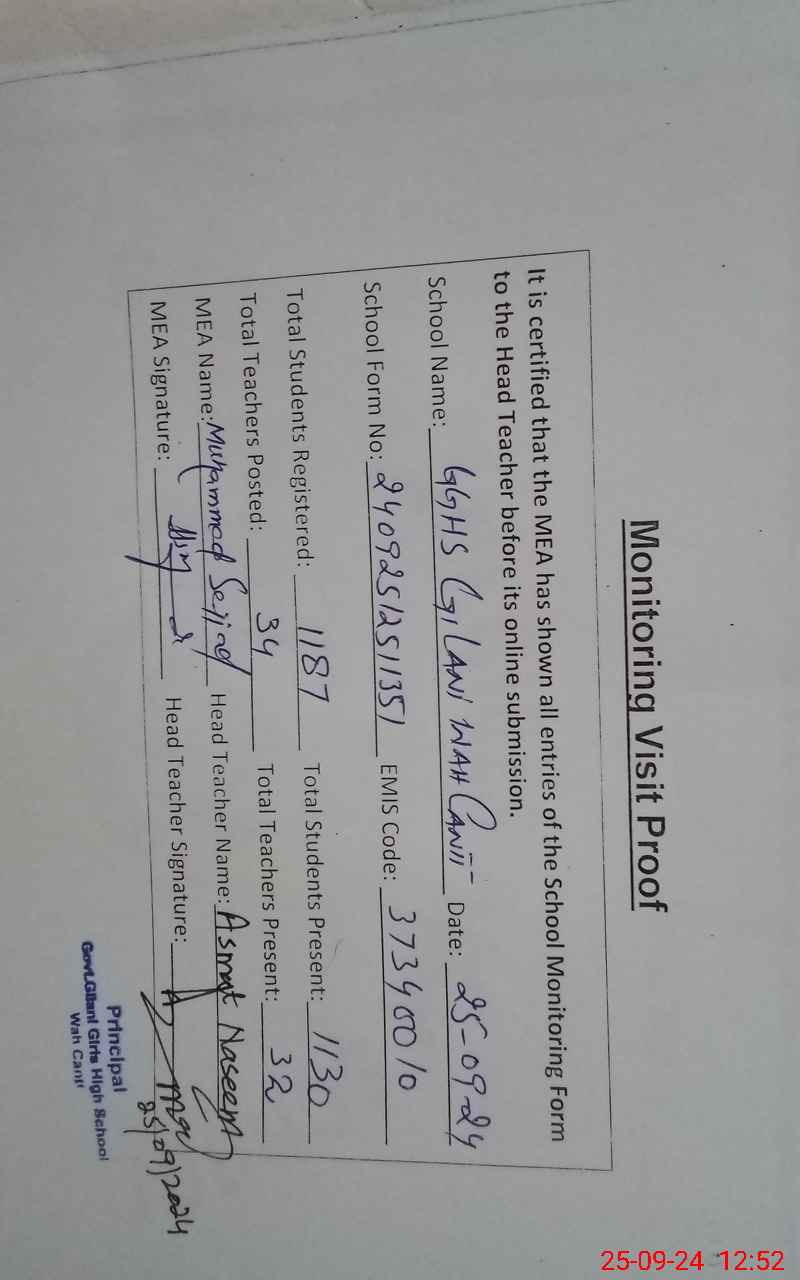 Monitoring Visit Proof
It is certified that the MEA has shown all entries of the School Monitoring Form
to the Head Teacher before its online submission.
School Name: GGHS GILANI WAH CANTT Date: 25-09-24
School Form No: 24092512511351 EMIS Code: 37340010
Total Students Registered: 1187 Total Students Present: 1130
Total Teachers Posted: 34 Total Teachers Present: 32
MEA Name: Muhammad Sajjad Head Teacher Name: Asmat Naseem
MEA Signature: Head Teacher Signature:
25/09/2024
Principal
Govt.Gilani Girls High School
Wah Cantt
25-09-24 12:52